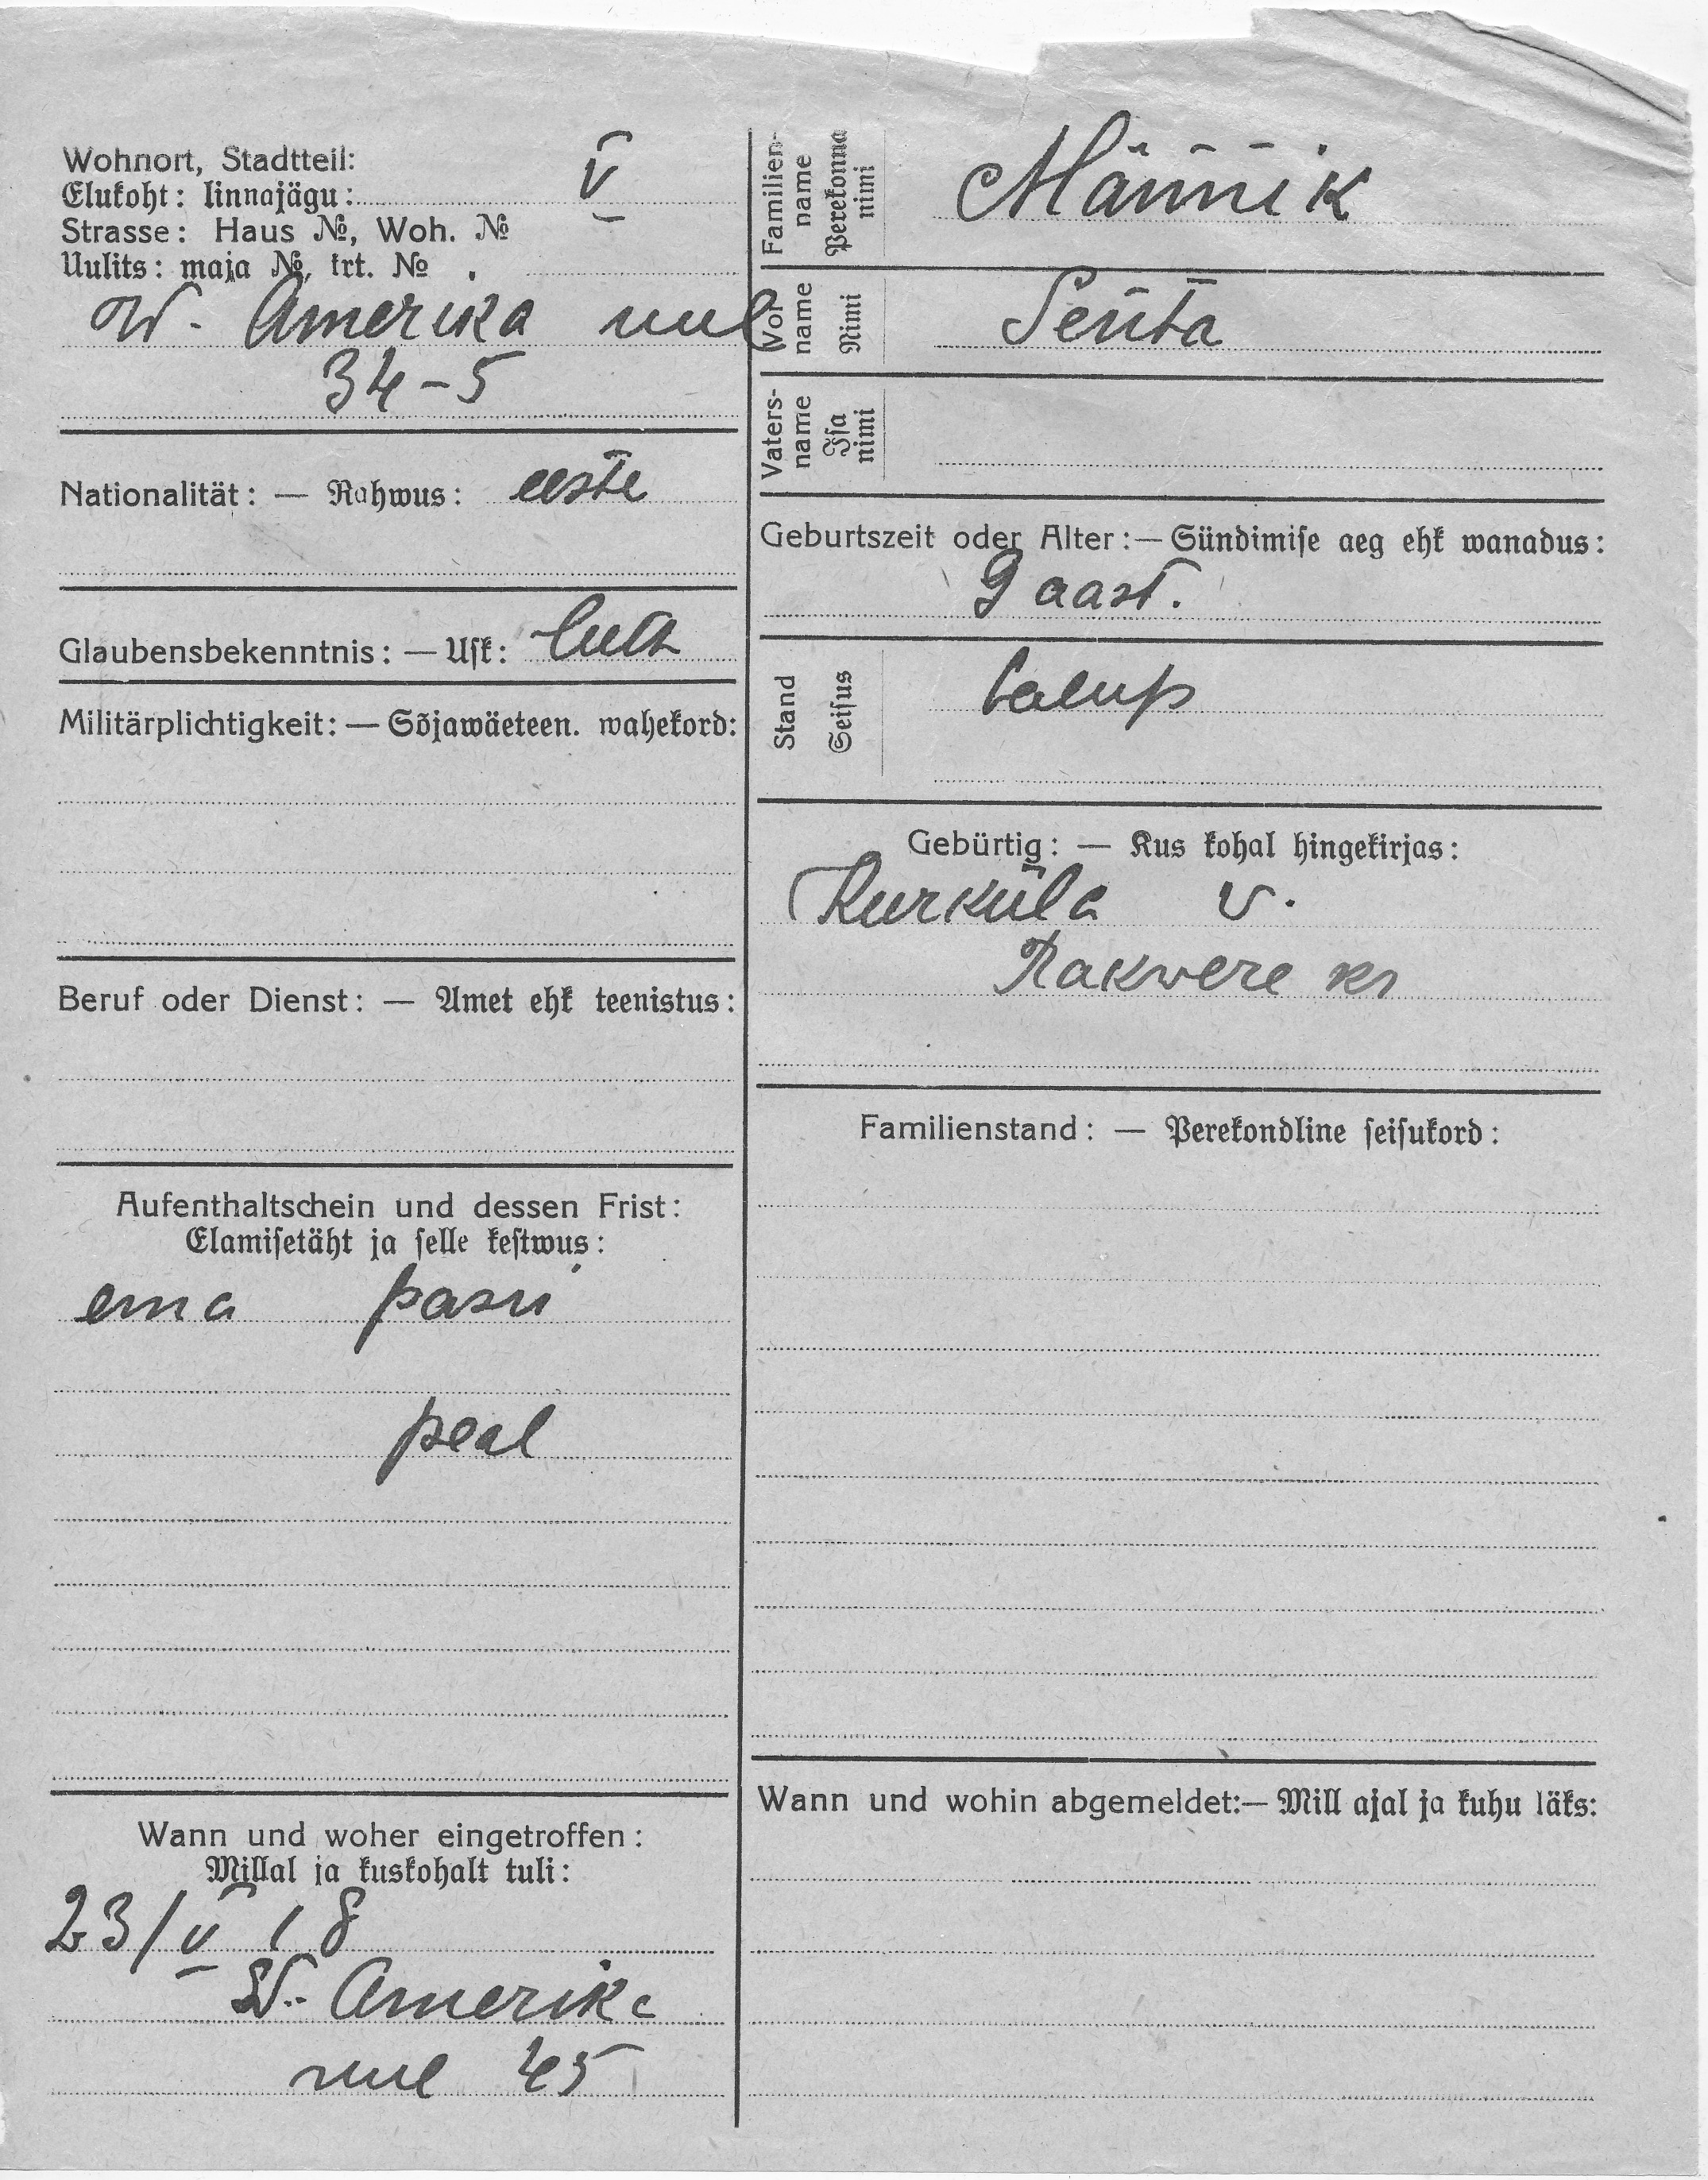 Wohnort, Stadtteil:
Elukoht: linnajägu: V
Strasse: Haus №, Woh. №
Uulits: maja №, krt. №
W. Amerika uul
34-5
Nationalität: — Rahwus: eesti
Glaubensbekenntnis: — Usk: luth
Militärplichtigkeit: — Sõjawäeteen. wahekord:
Beruf oder Dienst: — Amet ehk teenistus:
Aufenthaltschein und dessen Frist:
Elamisetäht ja selle kestwus:
ema passi
peal
Wann und woher eingetroffen:
Millal ja kuskohalt tuli:
23/V 18
W. Amerika
uul 45
Familien-
name
Perekonna
nimi
Männik
Vor
name
Nimi
Senta
Vaters-
name
Isa
nimi
Geburtszeit oder Alter:— Sündimise aeg ehk wanadus:
9 aast.
Stand
Seisus
talup
Gebürtig: — Kus kohal hingekirjas:
Kurküla v.
Rakwere kr
Familienstand: — Perekondline seisukord:
Wann und wohin abgemeldet:— Mill ajal ja kuhu läks: